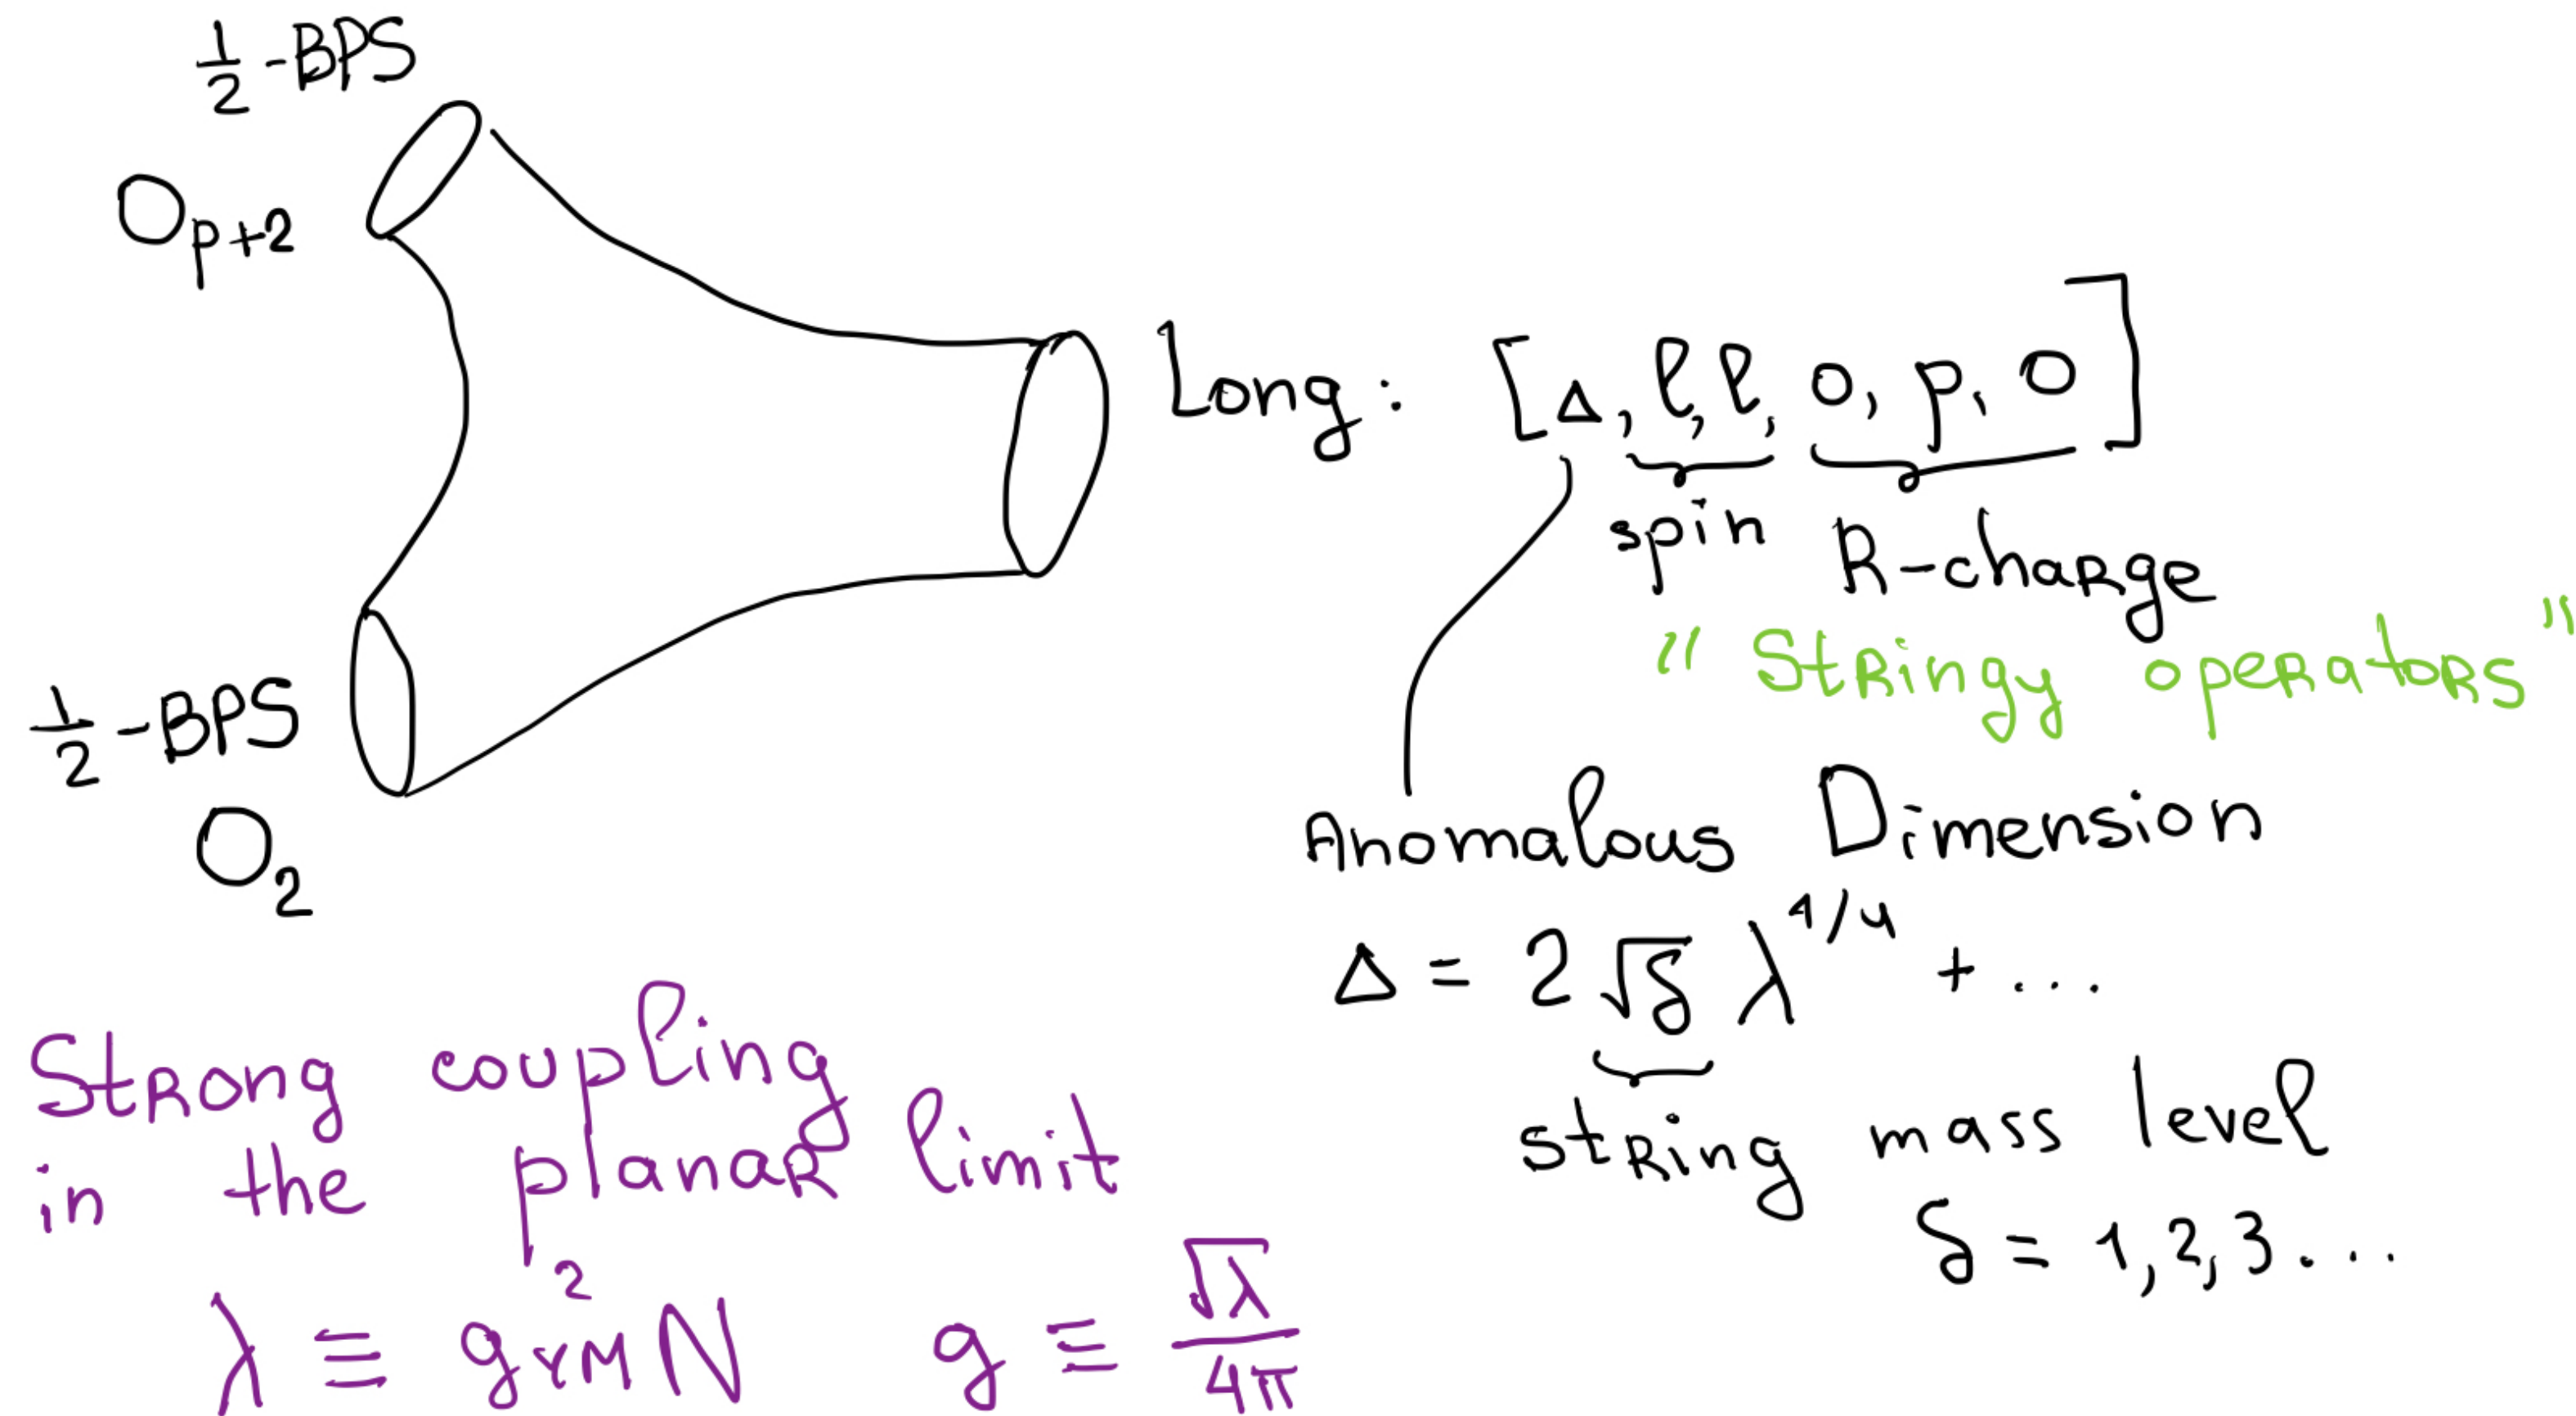 ½-BPS
O_{p+2}
½-BPS
O_2
Long: [Δ, ℓ, ℓ, 0, p, 0]
spin R-charge
"Stringy operators"
Anomalous Dimension
Δ = 2√δ λ^{1/4} + ...
string mass level
δ = 1, 2, 3 ...
Strong coupling
in the planar limit
λ ≡ g²_{YM} N g ≡ √λ / 4π